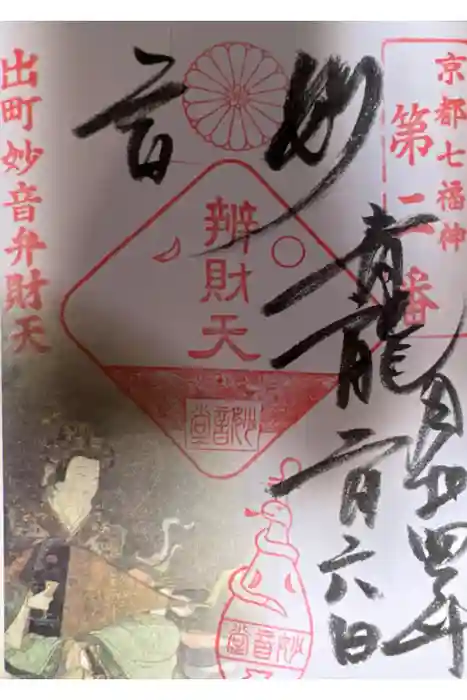 京都七福神
第二番
妙音
青龍
令和四年
二月六日
辨財天
妙音堂
妙音堂
出町妙音弁財天